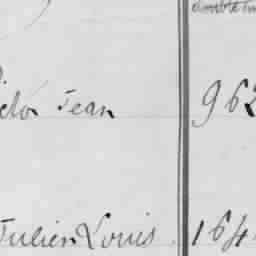 ictor Jean 962
Julien Louis 164